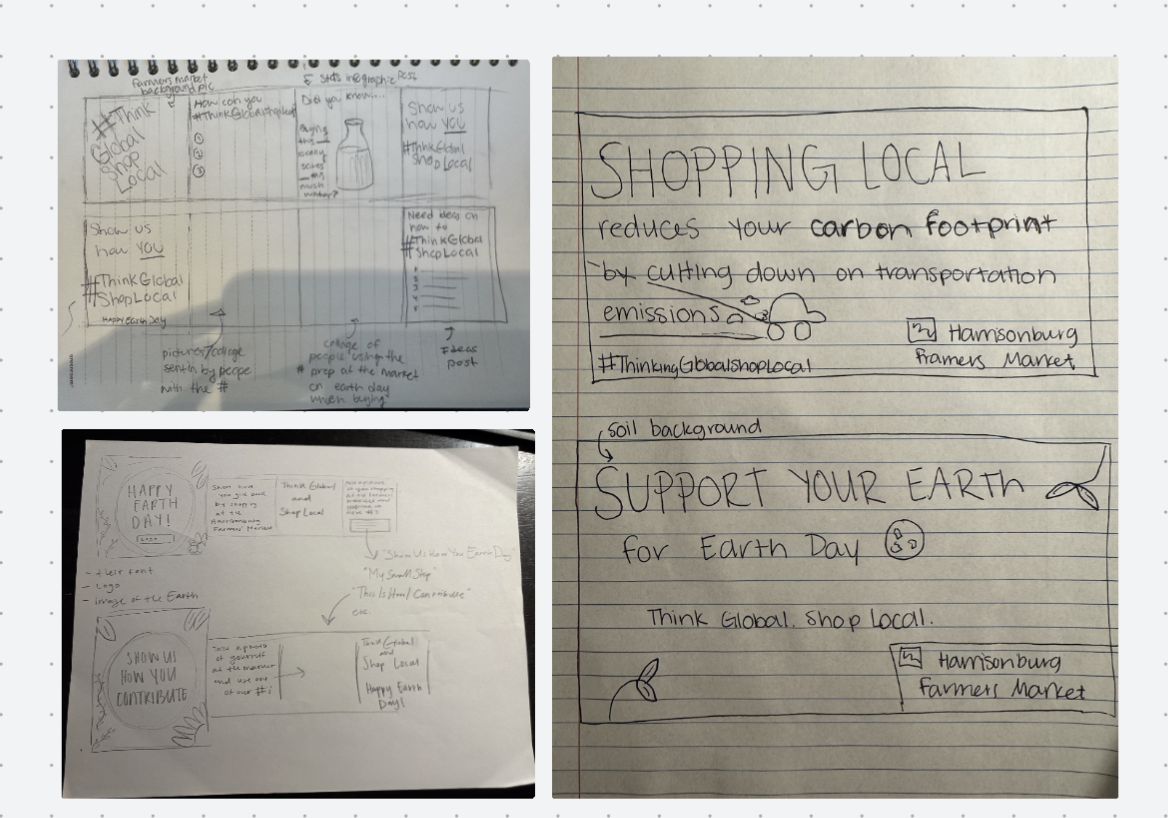 Farmers market
background pic
#Think
Global
Shop
Local
How can you
#ThinkGlobalShopLocal
①
②
③
Stats infographic Post
Did you know...
Buying
this
saves
much
Show us
how YOU
#ThinkGlobal
Shop Local
Show us
how YOU
#ThinkGlobal
#ShopLocal
Happy Earth Day
pictures/collage
sent in by people
with the #
collage of
people using the
# prop at the market
on earth day
when buying
Need ideas on
how to
#ThinkGlobal
ShopLocal
1
2
3
4
5
Ideas
post
HAPPY
EARTH
DAY!
2020
Show how
you give back
by shopping
at the
Harrisonburg
Farmers Market
Think Global
and
Shop Local
"Show Us How You Earth Day"
"My Small Step"
"This Is How I Contribute"
etc.
- their font
- Logo
- image of the Earth
SHOW US
HOW YOU
CONTRIBUTE
Take a photo
of yourself
at the market
and use one
of our #s
Think Global
and
Shop Local
Happy Earth
Day!
SHOPPING LOCAL
reduces your carbon footprint
by cutting down on transportation
emissions
Harrisonburg
Framers Market
#ThinkingGlobalshopLocal
soil background
SUPPORT YOUR EARTH
for Earth Day
Think Global. Shop Local.
Harrisonburg
Farmers Market